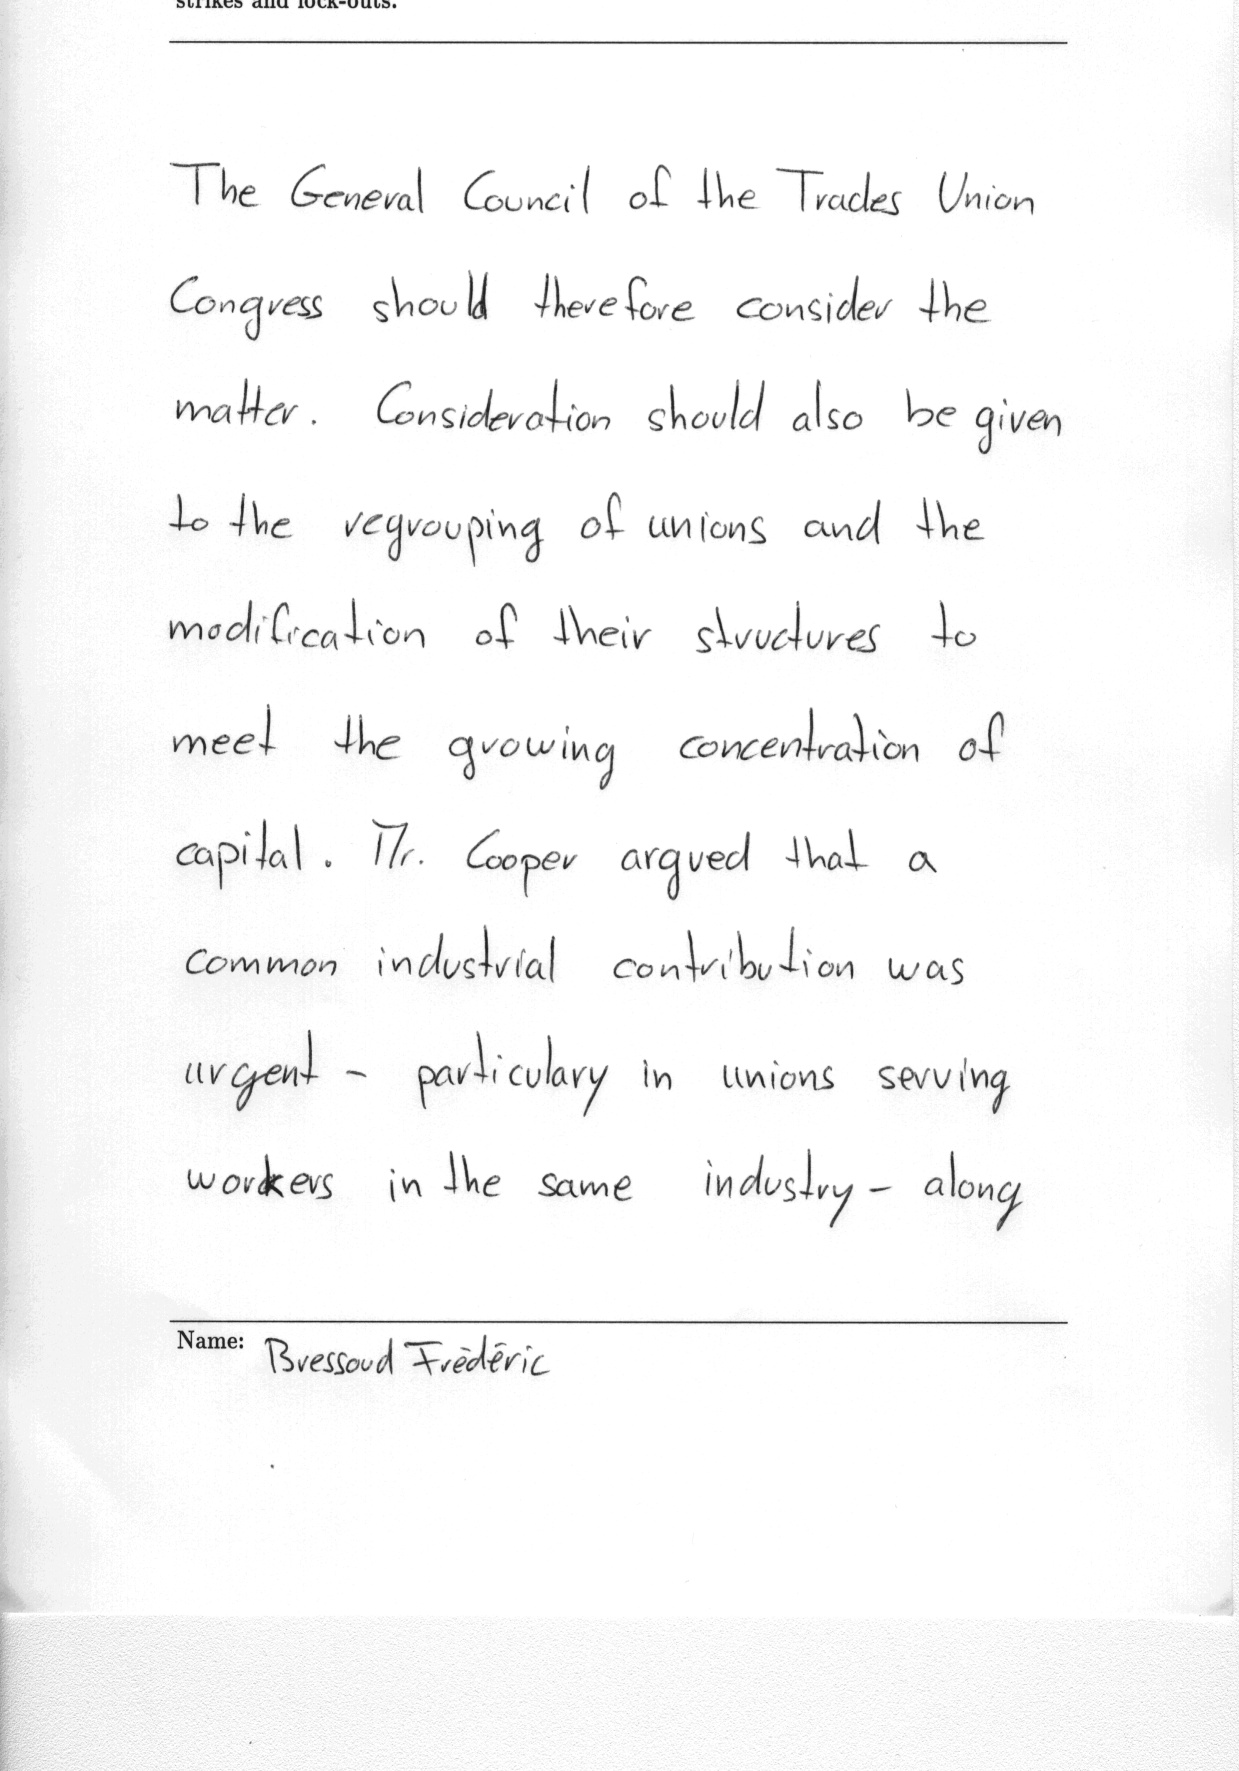 strikes and lock-outs.
The General Council of the Trades Union
Congress should therefore consider the
matter. Consideration should also be given
to the regrouping of unions and the
modification of their structures to
meet the growing concentration of
capital. Mr. Cooper argued that a
common industrial contribution was
urgent - particulary in unions serving
workers in the same industry - along
Name: Bressoud Frédéric